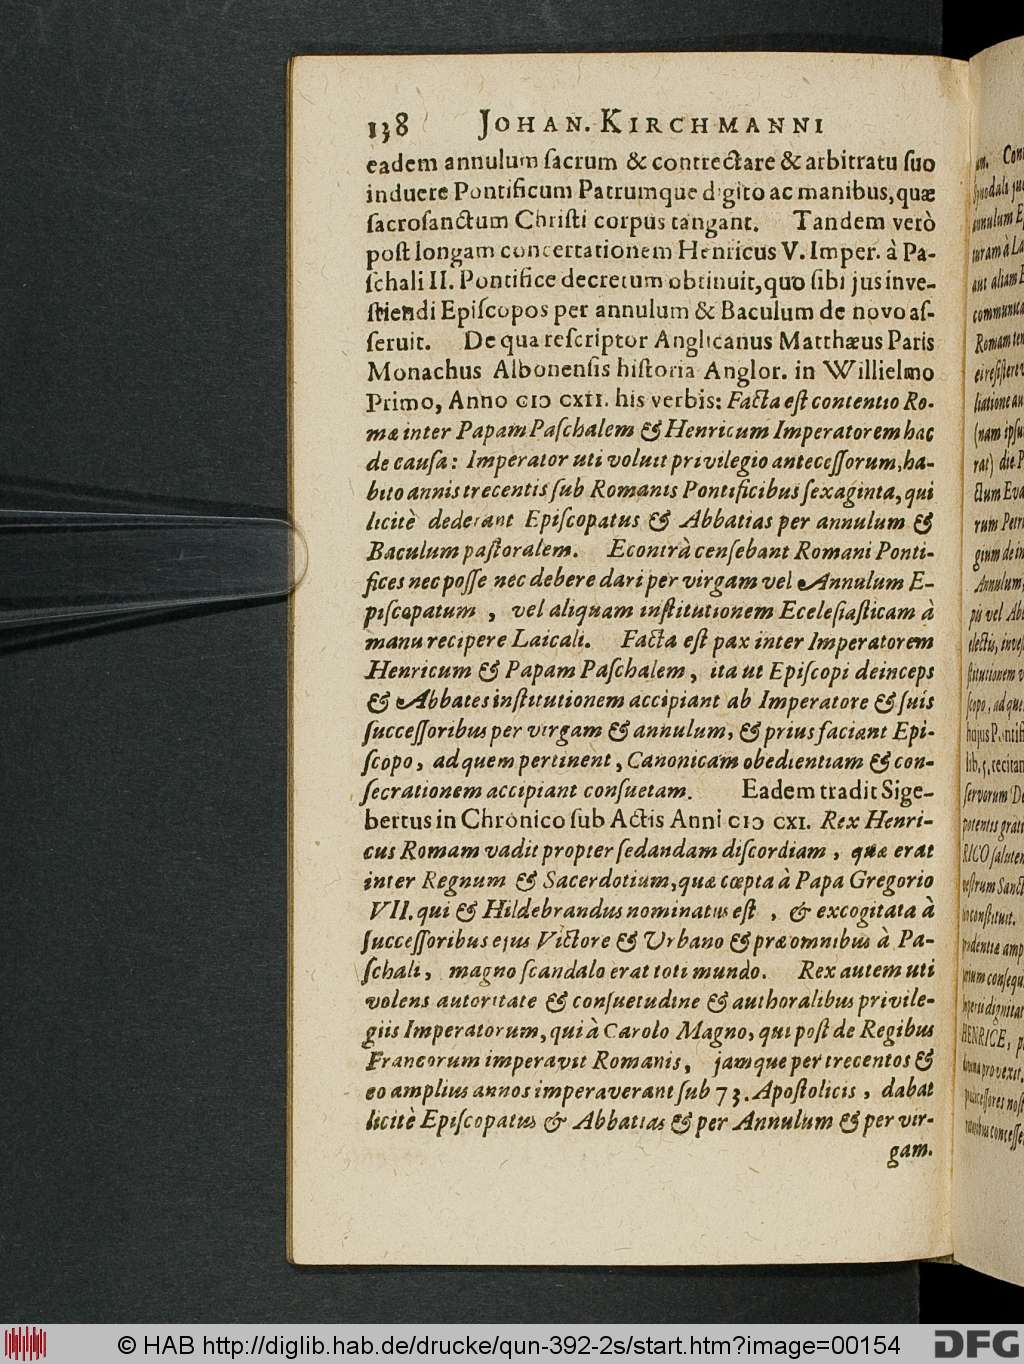 138 JOHAN. KIRCHMANNI
eadem annulum ſacrum & contrectare & arbitratu ſuo
induere Pontificum Patrumque digito ac manibus, quæ
ſacroſanctum Chriſti corpus tangant. Tandem verò
poſt longam concertationem Henricus V. Imper. à Pa-
ſchali II. Pontifice decretum obtinuit, quo ſibi jus inve-
ſtiendi Epiſcopos per annulum & Baculum de novo aſ-
ſeruit. De qua reſcriptor Anglicanus Matthæus Paris
Monachus Albonenſis hiſtoria Anglor. in Willielmo
Primo, Anno CIƆ CXII. his verbis: Facta eſt contentio Ro-
mæ inter Papam Paſchalem & Henricum Imperatorem hac
de cauſa: Imperator uti voluit privilegio anteceſſorum, ha-
bito annis trecentis ſub Romanis Pontificibus ſexaginta, qui
licitè dederant Epiſcopatus & Abbatias per annulum &
Baculum paſtoralem. Econtrà cenſebant Romani Ponti-
fices nec poſſe nec debere dari per virgam vel Annulum E-
piſcopatum, vel aliquam inſtitutionem Eceleſiaſticam à
manu recipere Laicali. Facta eſt pax inter Imperatorem
Henricum & Papam Paſchalem, ita ut Epiſcopi deinceps
& Abbates inſtitutionem accipiant ab Imperatore & ſuis
ſucceſſoribus per virgam & annulum, & prius faciant Epi-
ſcopo, ad quem pertinent, Canonicam obedientiam & con-
ſecrationem accipiant conſuetam. Eadem tradit Sige-
bertus in Chronico ſub Actis Anni CIƆ CXI. Rex Henri-
cus Romam vadit propter ſedandam diſcordiam, quæ erat
inter Regnum & Sacerdotium, quæ cœpta à Papa Gregorio
VII. qui & Hildebrandus nominatus eſt, & excogitata à
ſucceſſoribus ejus Victore & Urbano & præ omnibus à Pa-
ſchali, magno ſcandalo erat toti mundo. Rex autem uti
volens autoritate & conſuetudine & authoralibus privile-
giis Imperatorum, qui à Carolo Magno, qui poſt de Regibus
Francorum imperavit Romanis, jamque per trecentos &
eo amplius annos imperaverant ſub 73. Apoſtolicis, dabat
licitè Epiſcopatus & Abbatias & per Annulum & per vir-
gam.
© HAB http://diglib.hab.de/drucke/qun-392-2s/start.htm?image=00154
DFG